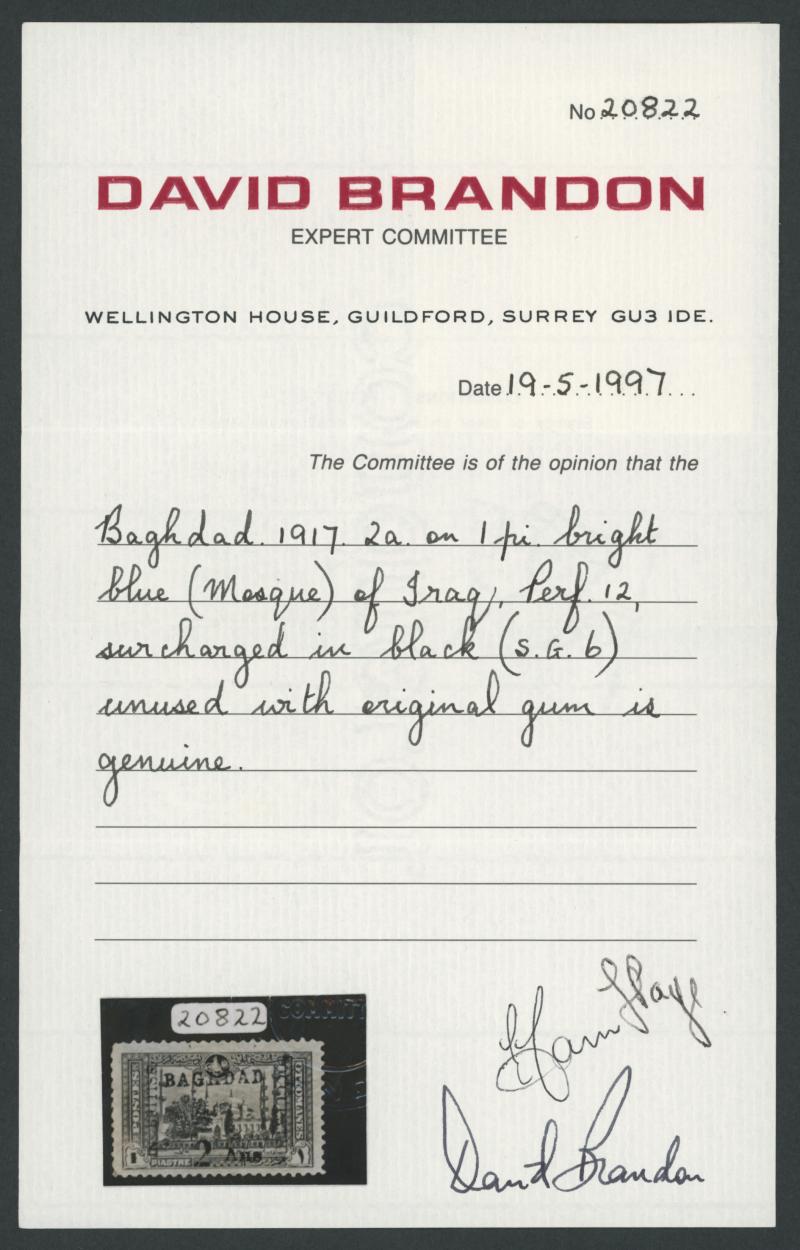 No 20822
DAVID BRANDON
EXPERT COMMITTEE
WELLINGTON HOUSE, GUILDFORD, SURREY GU3 1DE.
Date 19-5-1997
The Committee is of the opinion that the
Baghdad. 1917. 2a. on 1 pi. bright
blue (Mosque) of Iraq, Perf. 12,
surcharged in black (S.G. 6)
unused with original gum is
genuine.
20822
COMMITT
BAGHDAD
POSTES
OTTOMANES
2 Ans
1 PIASTRE ١
David Brandon